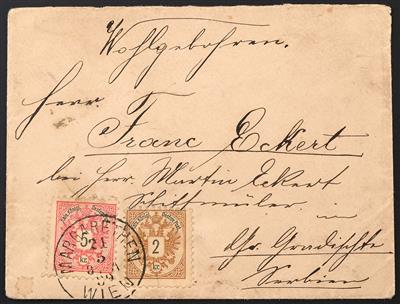 Wohlgebohren.
Herr
Franc Eckert
bei Herr. Martin Eckert
Schiffmüler. in
Gr. Gradischte
Serbien
5
kr.
2
kr.
MARGARETHEN
WIEN